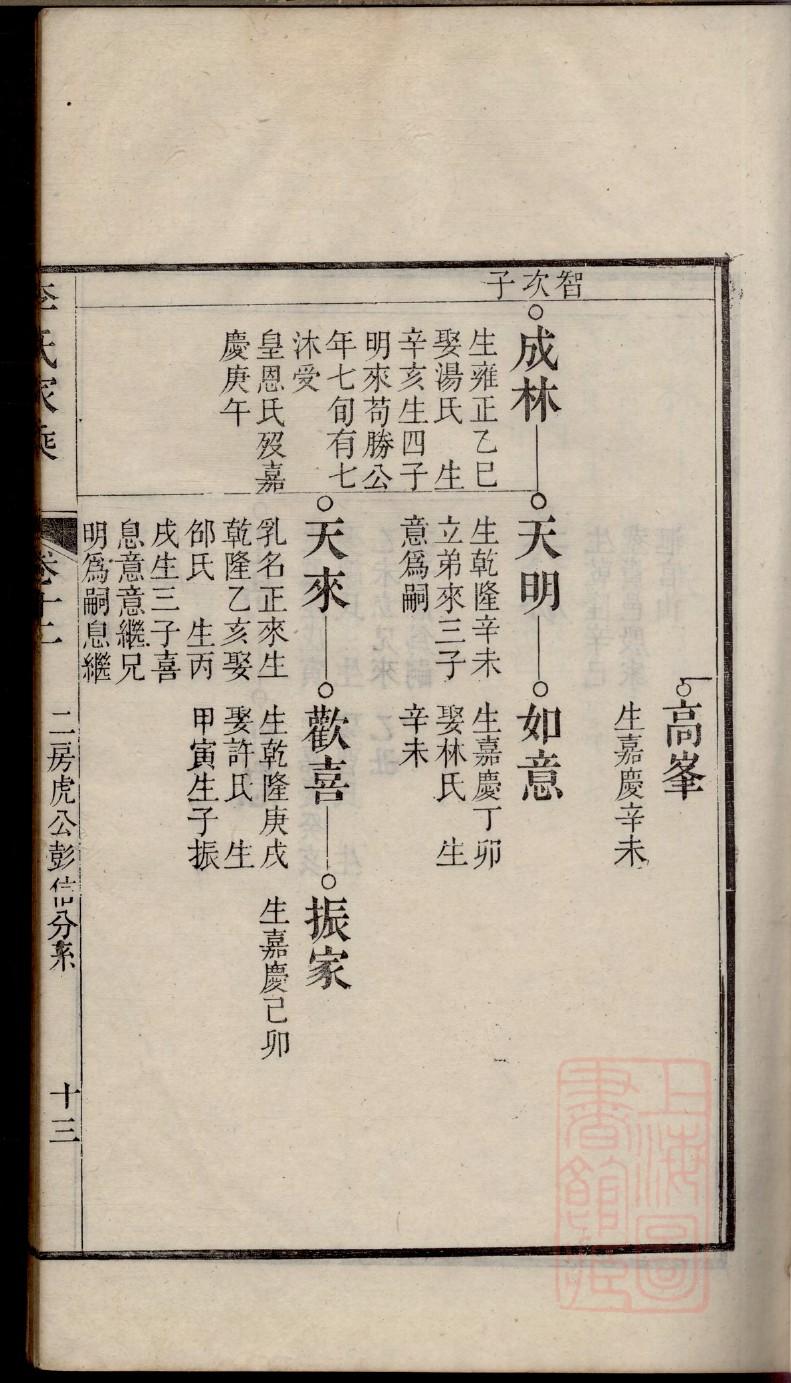 高峯
生嘉慶辛未
智次子
成林
生雍正乙巳
娶湯氏　生
辛亥生四子
明來苟勝公
年七旬有七
沐受
皇恩氏歿嘉
慶庚午
天明
生乾隆辛未
立弟來三子
意爲嗣
如意
生嘉慶丁卯
娶林氏　生
辛未
天來
乳名正來生
乾隆乙亥娶
邰氏　生丙
戌生三子喜
息意意繼兄
明爲嗣息繼
歡喜
生乾隆庚戌
娶許氏　生
甲寅生子振
振家
生嘉慶己卯
李氏家乘
卷十二
二房虎公彭信分系
十三
上海圖書館藏